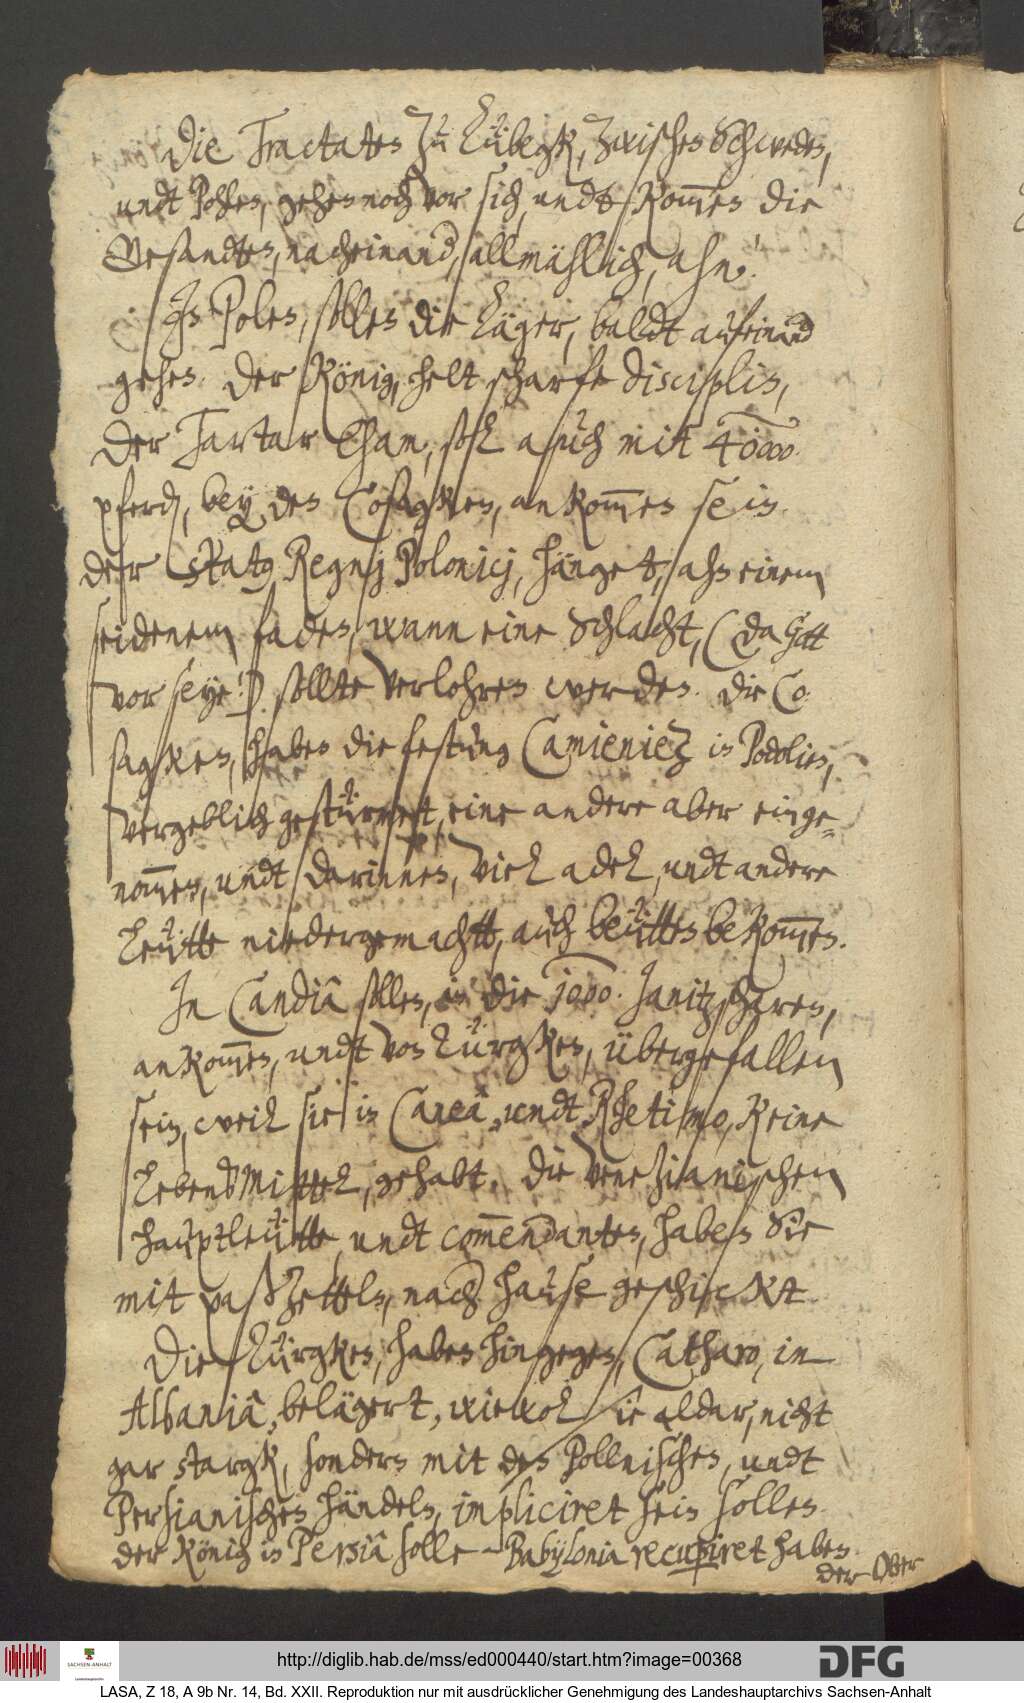 Die Tractaten zu Lübegk, zwischen Schweden,
undt Pohlen, gehen noch vor sich, undt kommen die
Gesandten, nacheinander, allmählich, ahn.
In Polen, sollen die Läger, baldt aufeinander
gehen. Der König, helt scharfe disciplin,
Der Tartar Cham, soll auch mit 40000
pferden, bey den Cosagken, ankommen sein.
der statq Regnj Polonicj, hänget, ahn einem
seidenem faden, wann eine Schlacht, (da Gott
vor seye!) sollte verlohren werden. Die Co¬
sagken, haben die festung Camieniez in Podolien,
vergeblich gestürmet, eine andere aber einge¬
nommen, undt darinnen, viel adel, undt andere
Leütte niedergemachtt, auch beütten bekommen.
In Candiâ sollen, die 1000. Janitzscharen,
ankommen, undt von Türgken, übergefallen
sein, weil sie in Caneâ, undt Rhetimo, keine
LebensMittel, gehabt. Die Venezianischen
hauptleütte, undt commendanten, haben Sie
mit paßzetteln, nach hause geschickt.
Die Türgken, haben hingegen, Catharo, in
Albaniâ, belägert, wiewol sie aldar, nicht
gar stargk, sondern mit den Pollnischen, undt
Persianischen händeln, impliciret sein sollen.
der König in Persiâ solle Babylonia recuperiret haben.
der Ober
http://diglib.hab.de/mss/ed000440/start.htm?image=00368
DFG
SACHSEN-ANHALT
LASA, Z 18, A 9b Nr. 14, Bd. XXII. Reproduktion nur mit ausdrücklicher Genehmigung des Landeshauptarchivs Sachsen-Anhalt